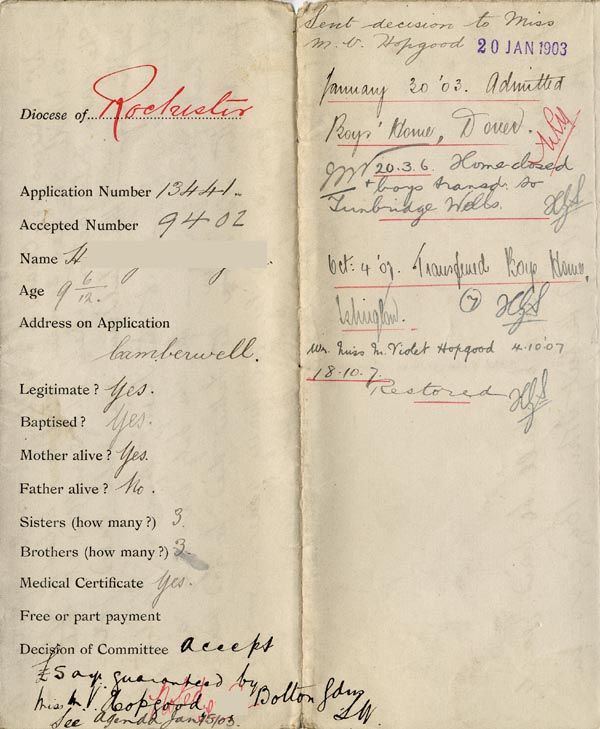 Diocese of Rochester
Application Number 13441.
Accepted Number 9402
Name H
Age 9 6/12.
Address on Application
Camberwell.
Legitimate? Yes.
Baptised? Yes.
Mother alive? Yes.
Father alive? No.
Sisters (how many?) 3.
Brothers (how many?) 3.
Medical Certificate Yes.
Free or part payment
Decision of Committee accept
£5 a yr guaranteed by
Miss M. V. Hopgood Bolton Gdns
S.W.
See Agenda Jan 15/03.
Sent decision to Miss
M. V. Hopgood 20 JAN 1903
January 20 '03. Admitted
Boys' Home, Dover.
20.3.6. Home closed
+ boys transd. to
Tunbridge Wells. HGS
Oct. 4 '07. Transferred Boys Home,
Islington. (7) HGS
Wr. Miss M. Violet Hopgood 4.10.07
18.10.7.
Restored HGS